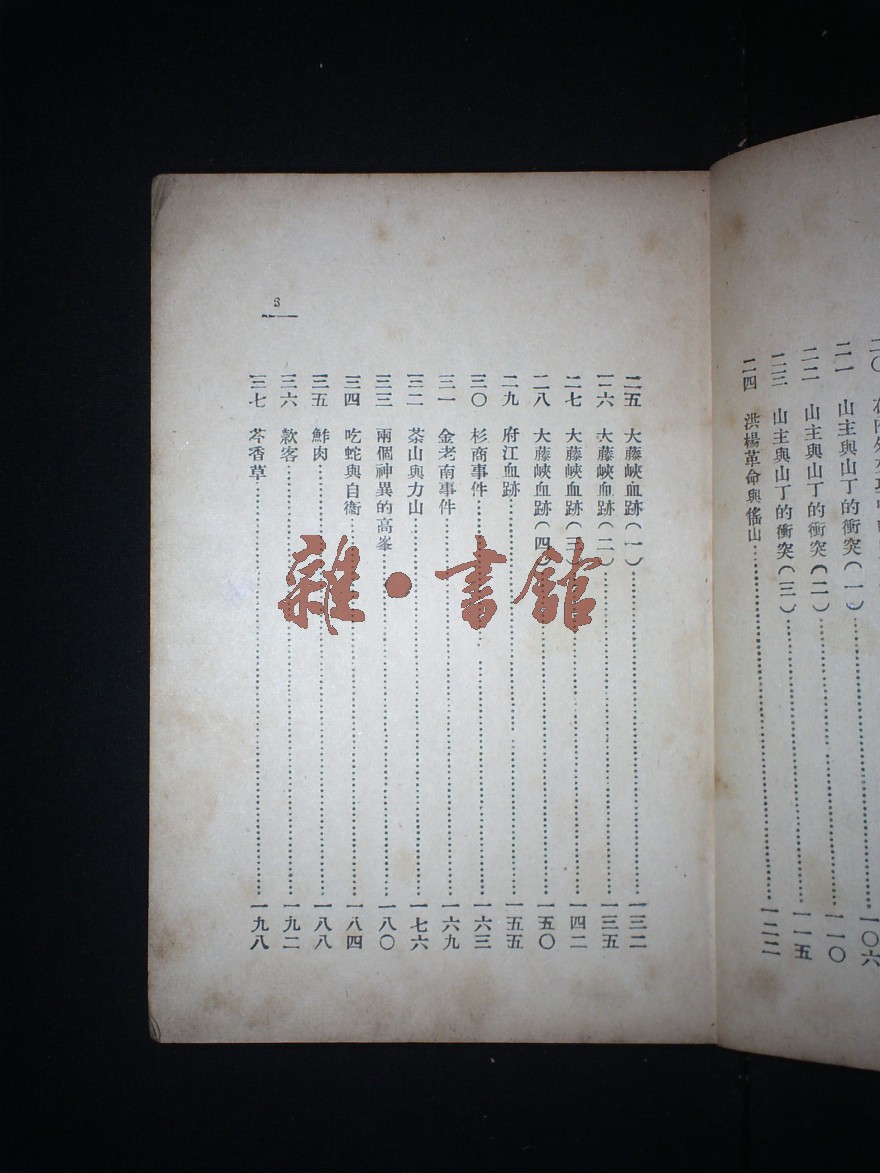 二一 山主與山丁的衝突(一)
一一〇
二二 山主與山丁的衝突(二)
一一五
二三 山主與山丁的衝突(三)
二四 洪楊革命與傜山
一二二
二五 大藤峽血跡(一)
一三二
二六 大藤峽血跡(二)
一三五
二七 大藤峽血跡(三)
一四二
二八 大藤峽血跡(四)
一五〇
二九 府江血跡
一五五
三〇 杉商事件
一六三
三一 金老南事件
一六九
三二 茶山與力山
一七六
三三 兩個神異的高峯
一八〇
三四 吃蛇與自衛
一八四
三五 鮓肉
一八八
三六 款客
一九二
三七 芩香草
一九八
3
雜•書館